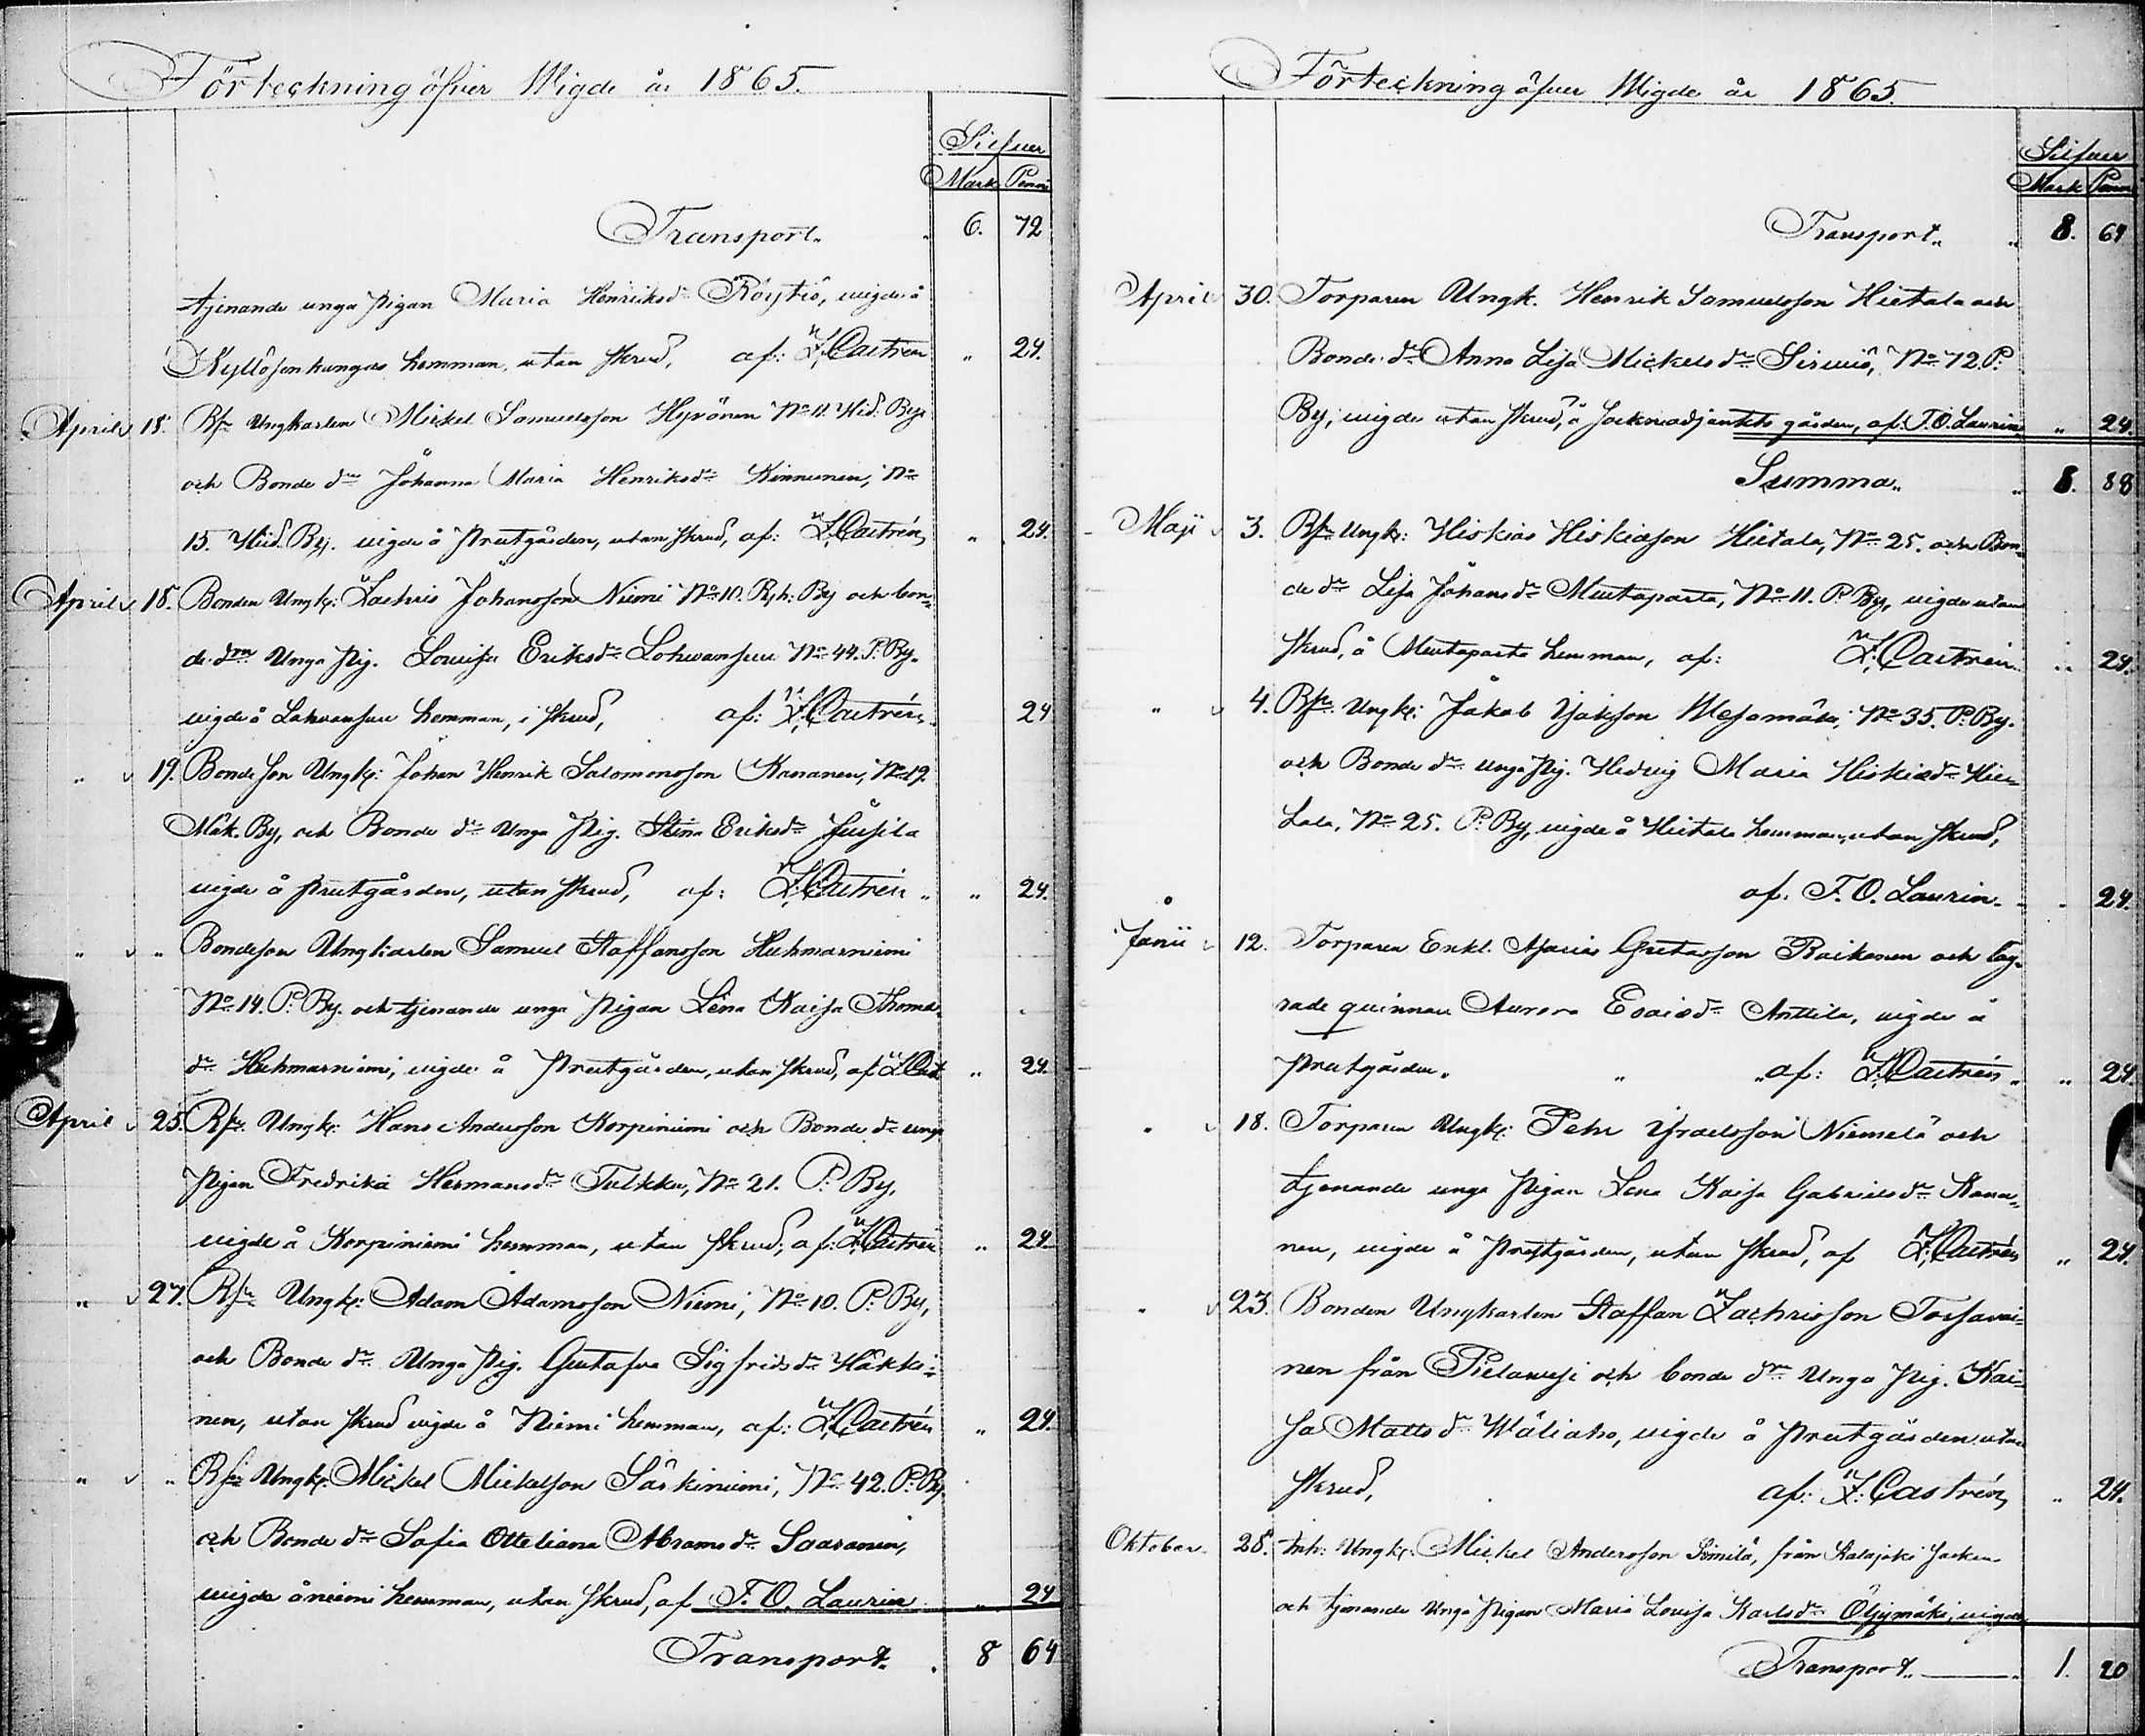 Förteckning öfver Wigde år 1865.
Silfver
Mark Penni
Transport. 6. 72
tjenande unga Pigan Maria Henriksdr Röytiö, vigde å
Kyllösenkangas hemman, utan skrud, af: Z. Castrén " 24.
April 18. Bsn Ungkarlen Mickel Samuelsson Hyvönen No 11. Hid. By
och Bonde dr Johanna Maria Henriksdr Kinnunen, No
15. Hid. By. vigde å Prestgården, utan skrud, af: Z. Castrén " 24.
April 18. Bonden Ungk: Zachris Johansson Niemi No 10. Rh. By och bon-
de drn Unga Pig. Lovisa Eriksdr No 44. P. By.
vigde å hemman, i skrud, af: Z. Castrén 24
" 19. Bondeson Ungk: Johan Henrik Salomonsson Kananen, No 19.
Mäk. By, och Bonde dr Unga Pig. Stina Eriksdr Jussila
vigde å Prestgården, utan skrud, af: Z. Castrén " " 24.
" " Bondeson Ungkarlen Samuel Staffansson Huhmarniemi
No 14. P. By. och tjenande unga Pigan Lena Kaisa Thomas
dr Huhmarniemi, vigde å Prestgården, utan skrud, af Z. Cast " 24.
April 25. Bsn Ungk: Hans Andersson Korpiniemi och Bonde dr unga
Pigan Fredrika Hermansdr Tulkku, No 21. P. By,
vigde å Korpiniemi hemman, utan skrud, af: Z. Castrén " 24
" 27. Bsn Ungk: Adam Adamsson Niemi, No 10. P. By,
och Bonde dr Unga Pig. Gustafva Sigfridsdr Häkki-
nen, utan skrud vigde å Niemi hemman, af: Z. Castrén " 24.
" " Bsn Ungk: Mickel Mickelsson Särkiniemi, No 42. P. By.
och Bonde dr Sofia Otteliana Abramsdr Saaranen,
vigde å niemi hemman, utan skrud, af F. O. Laurin " 24
Transport. 8 64
Förteckning öfver Wigde år 1865.
Silfver
Mark Penni
Transport. " 8. 64
April 30. Torparen Ungk. Henrik Samuelsson Hietala och
Bonde dr Anna Lisa Mickelsdr Sirviö, No 72. P.
By, vigde utan skrud, å Sockneadjunkts gården, af: F. O. Laurin " 24.
Summa. " 8. 88
Maji 3. Bsn Ungk: Hiskias Hiskiasson Hietala, No 25. och Bon-
de dr Lisa Johansdr Mustaparta, No 11. P. By, vigde utan
skrud, å Mustaparta hemman, af: Z. Castrén " 24.
" 4. Bsn Ungk: Jakob Jakson Wesamäki, No 35. P. By.
och Bonde dr unga Pig. Hedvig Maria Hiskiædr Hie-
tala, No 25. P. By, vigde å Hietala hemman, utan skrud,
af. F. O. Laurin. " 24.
Junii 12. Torparen Enkl. Gustafsson Raikonen och lag-
rade quinnan Aurora Esaiædr Anttila, vigde å
Prestgården. " " af: Z. Castrén " " 24.
" 18. Torparen Ungk: Pehr Yraelsson Niemelä och
tjenande unga Pigan Lena Kaisa Gabrielsdr Kana-
nen, vigde å Prestgården, utan skrud, af Z. Castrén " 24.
" 23. Bonden Ungkarlen Staffan Zachrisson Tossavai-
nen från Pielavesi och bonde drn Unga Pig. Kai-
sa Mattsdr Wäliaho, vigde å Prestgården utan
skrud, af: Z. Castrén " 24.
Oktober 28. Inh: Ungk: Mickel Andersson från Kalajoki Socken
och tjenande Unga Pigan Maria Lovisa Karlsdr Öljymäki, vigde
Transport. 1. 20